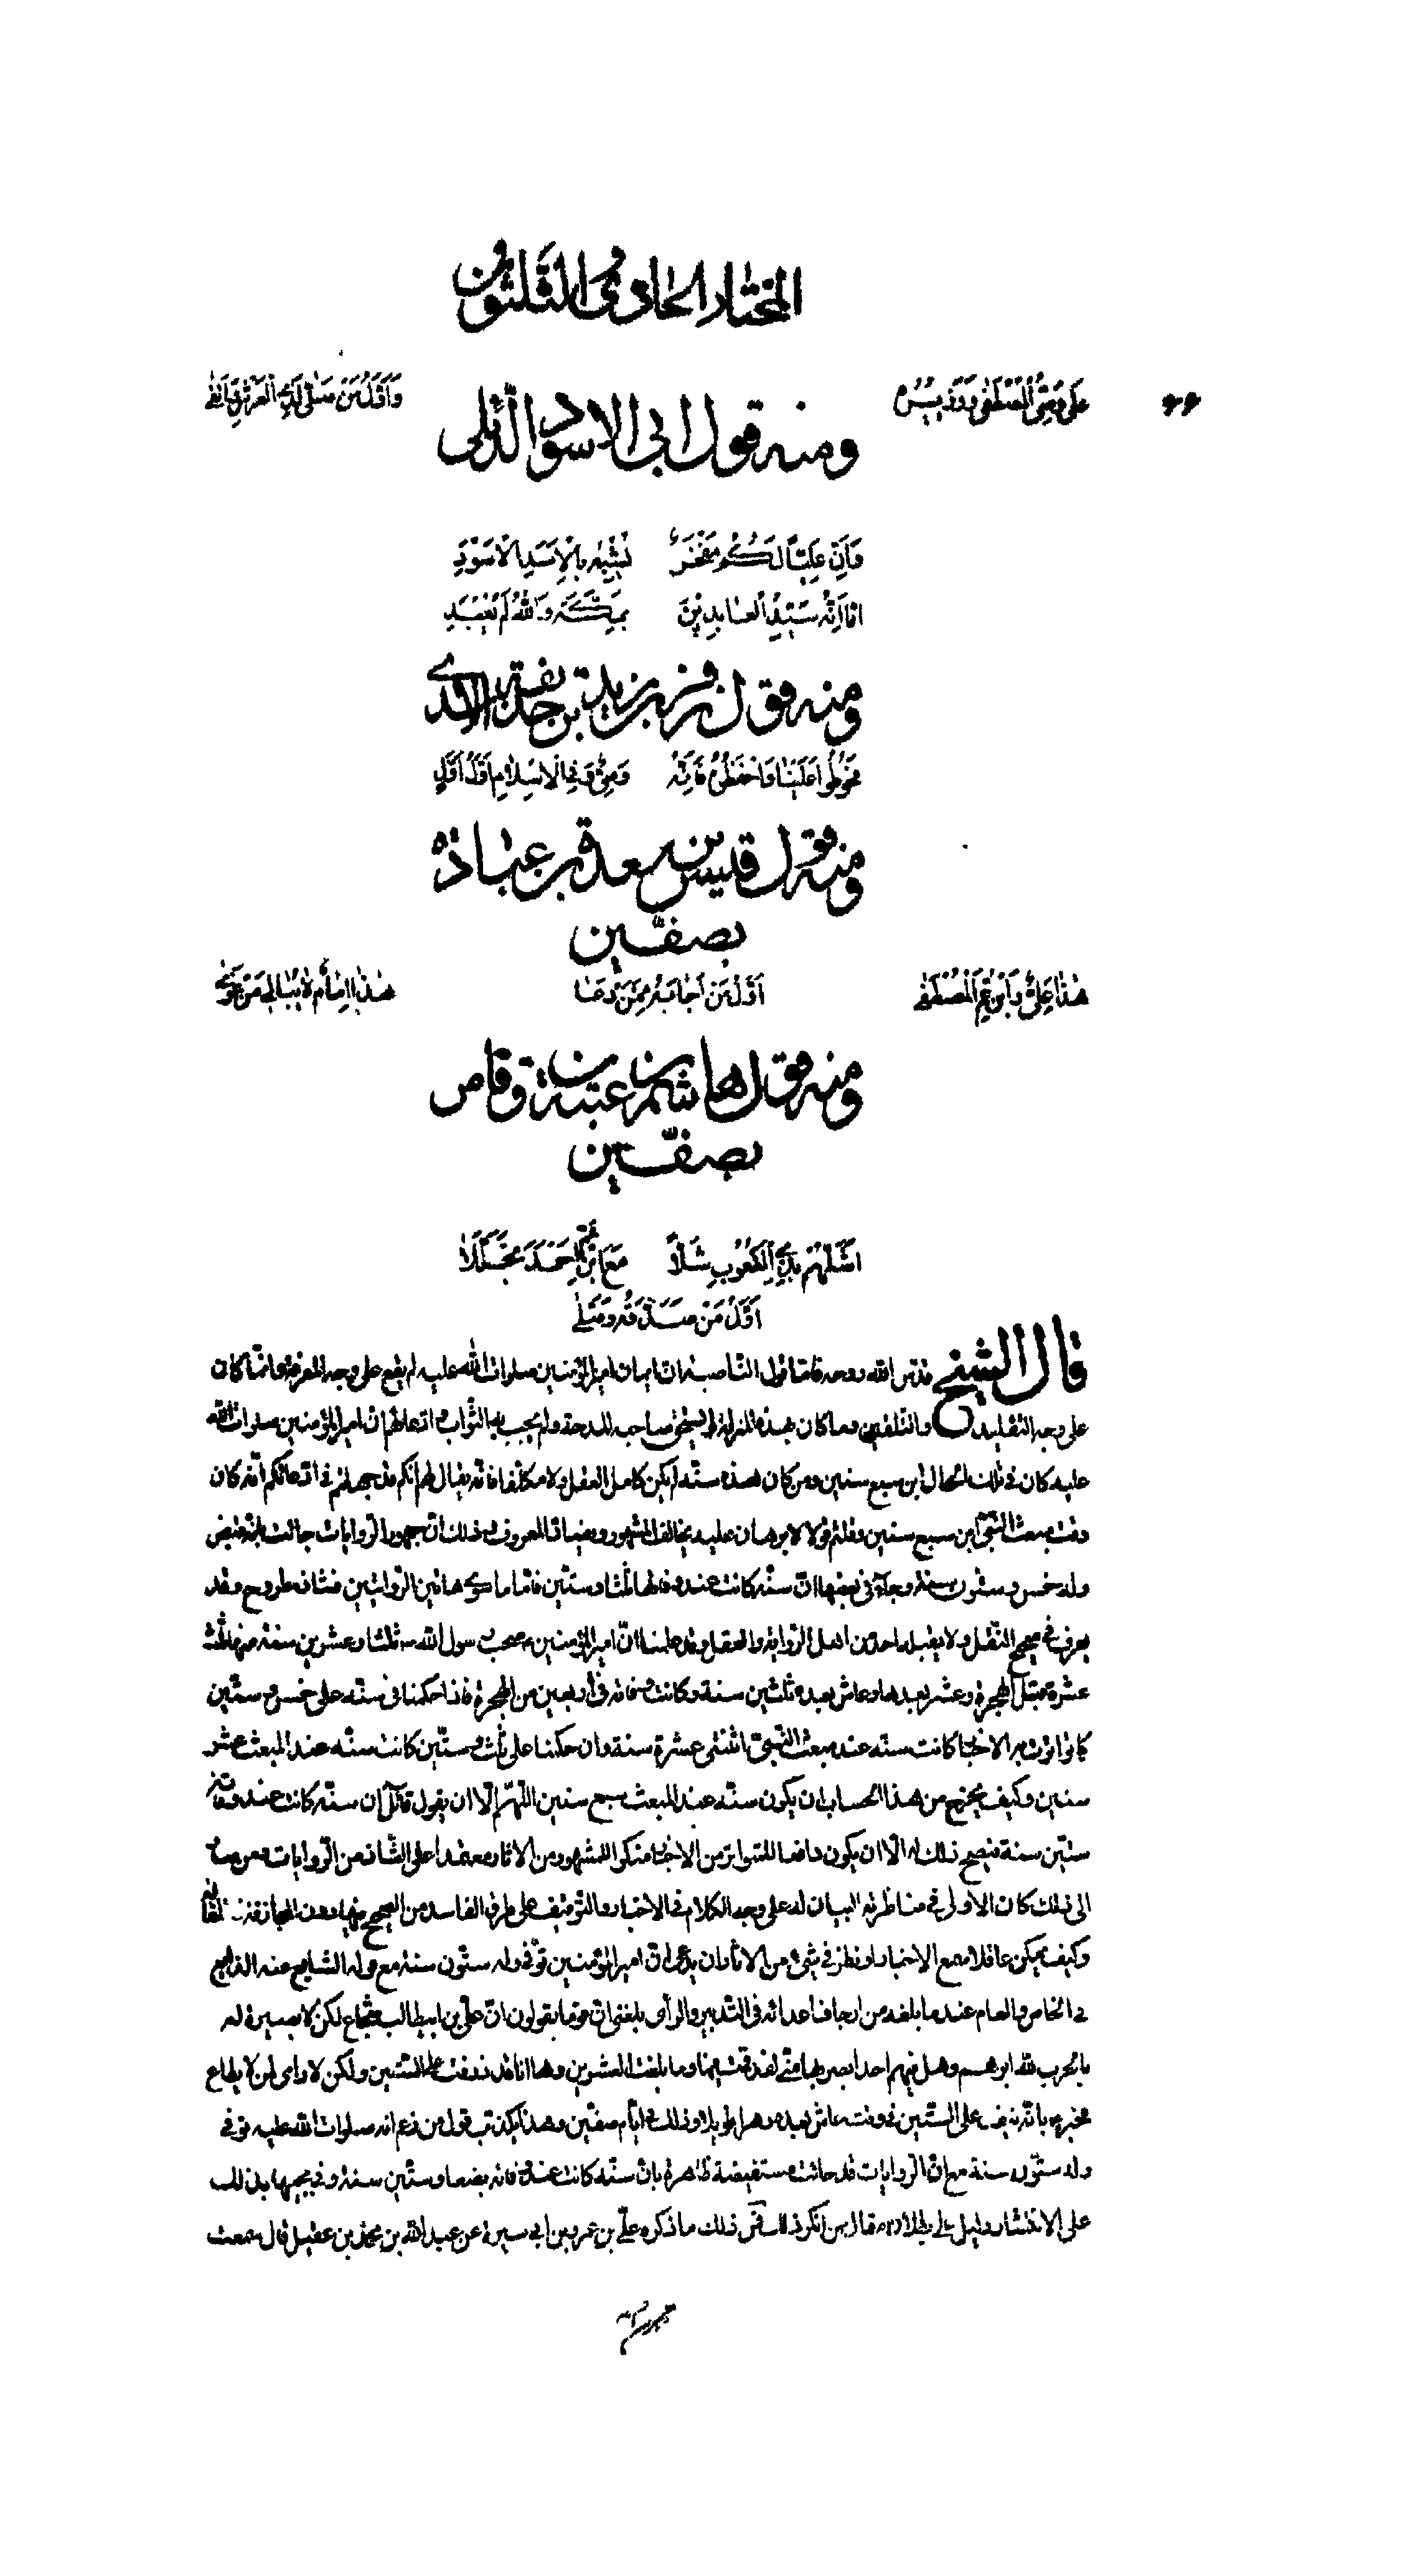 المختار الحادى والثلثون
٦٦
علي وصي المصطفى ووزيره
وأول من صلى لذي العرش واتقى
ومنه قول ابى الاسود الدئلى
وَاَنَّ عَلِيًّا لَكُم مَفْخَرٌ يُشَبَّه بِالْاَسَدِ الْاَسْوَدِ
اما اِنَّه سَيِّدُ العابِدينَ بِمَكَّةَ وَاللهُ لَم يُعْبَدِ
ومنه قول زفر بن يزيد بن حذيفة الاسدى
فحُوطُوا عَلِيًّا وَاحْفَظُوهُ فَاِنَّه وَصِيٌّ وَفِي الْاِسْلامِ اَوَّلُ اَوَّلِ
ومنه قول قيس بن سعد بن عبادة
بصفّين
هذا عَلِيٌّ وَابْنُ عَمِّ الْمُصْطَفى
اَوَّلُ مَنْ اَجابَهُ مِمَّنْ دَعا
هذا اِمامٌ لا يُبالي مَنْ غَوى
ومنه قول هاشم بن عتبة بن وقاص
بصفّين
اَشُلُّهُمْ بِذِي الْكُعُوبِ شَلًّا مَعَ ابْنِ عَمِّ اَحْمَدَ
اَوَّلُ مَنْ صَدَّقَهُ وَصَلّى
قال الشيخ قدّس الله روحه فامّا قول النّاصبة انّ ايمان اميرالمؤمنين صلوات الله عليه لم يقع على وجه المعرفة وانّما كان
على وجه التقليد والتلقين وما كان بهذه المنزلة لم يستحق صاحبه المدحة ولم يجب به الثّواب وادعائهم ان اميرالمؤمنين صلوات الله
عليه كان فى تلك الحال ابن سبع سنين ومن كان هذه سنّه لم يكن كامل العقل ولا مكلّفا فانّه يقال لهم انّكم قد جهلتم فى ادعائكم انّه كان
وقت مبعث النّبىّ ابن سبع سنين وقلتم قولا لا برهان عليه يخالف المشهور ويضادّ المعروف وذلك انّ جمهور الرّوايات جائت بانّه قبض
وله خمس وستّون سنة وجاء فى بعضها انّ سنّه كانت عند وفاته ثلثا وستّين فامّا ما سوى هاتين الرّوايتين فشاذ مطروح وقد
يعرف فى صحيح النّقل ولا يقبله احد من اهل الرّواية والعقل وقد علمنا انّ اميرالمؤمنين صحب رسول الله ثلثا وعشرين سنة منها ثلث
عشرة قبل الهجرة وعشر بعدها وعاش بعده ثلثين سنة وكانت وفاته فى اربعين من الهجرة فاذا حكمنا فى سنّه على خمس وستّين
كما تواترت به الاخبار كانت سنّه عند مبعث النّبىّ اثنتى عشرة سنة وان حكمنا على ثلث وستّين كانت سنّه عند المبعث عشر
سنين وكيف يخرج من هذا الحساب ان يكون سنّه عند المبعث سبع سنين اللّهمّ الّا ان يقول قائل ان سنّه كانت عند وفاته
ستّين سنة فيصح ذلك له الّا ان يكون دافعا للمتواتر من الاخبار منكرا للمشهور من الاثار معتمدا على الشّاذ من الرّوايات ومن صار
الى ذلك كان الاولى فى مناظرته البيان له على وجه الكلام فى الاخبار والتّوقيف على طرق الفاسد من الصحيح فيها دون المجازفة
وكيف يمكن عاقلا سمع الاخبار او نظر فى شىء من الاثار ان يدعى انّ اميرالمؤمنين توفّى وله ستّون سنة مع قوله الشايع عنه الذايع
فى الخاص والعام عند ما بلغه من ارجاف اعدائه فى التّدبير والرأى بلغنى انّ قوما يقولون انّ علىّ بن ابيطالب شجاع لكن لا بصيرة له
بالحرب لله ابوهم وهل فيهم احد ابصر بها منّى لقد قمت فيها وما بلغت العشرين وها انا قد ذرفت على السّتّين ولكن لا رأى لمن لا يطاع
فخبر بانّه نيف على السّتّين فى وقت عاش بعده دهرا طويلا وذلك فى ايّام صفّين وهذا يكذب قول من زعم انه صلوات الله عليه توفى
وله ستّون سنة مع انّ الرّوايات قد جائت مستفيضة ظاهرة بانّ سنّه كانت عند وفاته بضعا وستّين سنة وفى مجيئها بذلك
على الانتشار دليل على بطلان مقال من انكر ذلك فمن ذلك ما ذكره علىّ بن عمرو بن ابى سيرة عن عبد الله بن محمّد بن عقيل قال سمعت